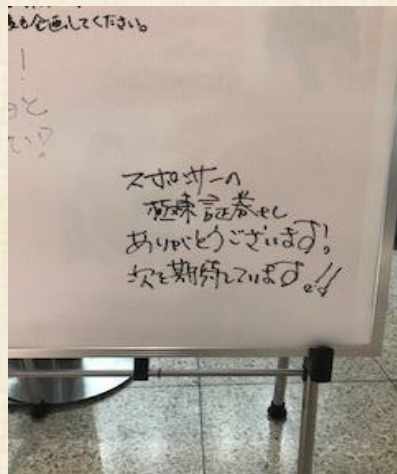 も企画してください。
!
と
い?
スポンサーの
極東証券さん
ありがとうございます!
次も期待しています!!